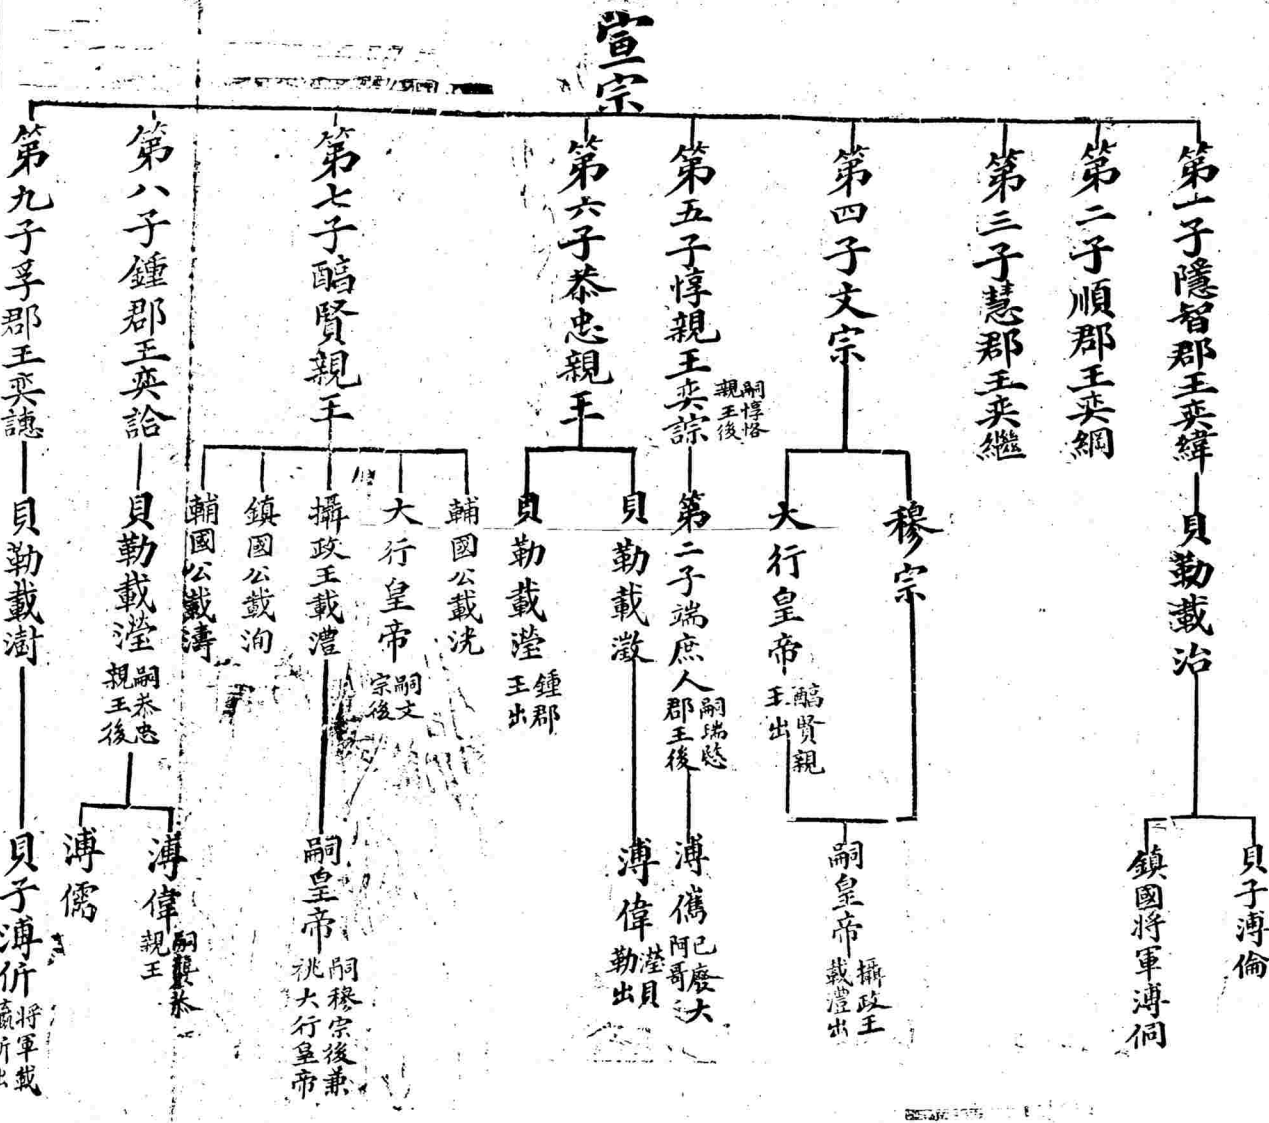 宣宗
第一子隱智郡王奕緯
貝勒載治
貝子溥倫
鎮國將軍溥侗
第二子順郡王奕綱
第三子慧郡王奕繼
第四子文宗
穆宗
大行皇帝
醇賢親
王出
嗣皇帝
攝政王
載灃出
第五子惇親王奕誴
嗣惇恪
親王後
第二子端庶人
嗣瑞愍
郡王後
溥儁
已廢大
阿哥
第六子恭忠親王
貝勒載澂
溥偉
瀅貝
勒出
貝勒載瀅
鍾郡
王出
第七子醇賢親王
輔國公載洸
大行皇帝
嗣文
宗後
攝政王載灃
嗣皇帝
嗣穆宗後兼
祧大行皇帝
鎮國公載洵
輔國公載濤
第八子鍾郡王奕詥
貝勒載瀅
嗣恭忠
親王後
溥偉
嗣襲恭
親王
溥儒
第九子孚郡王奕譓
貝勒載澍
貝子溥伒
將軍載
瀛所出